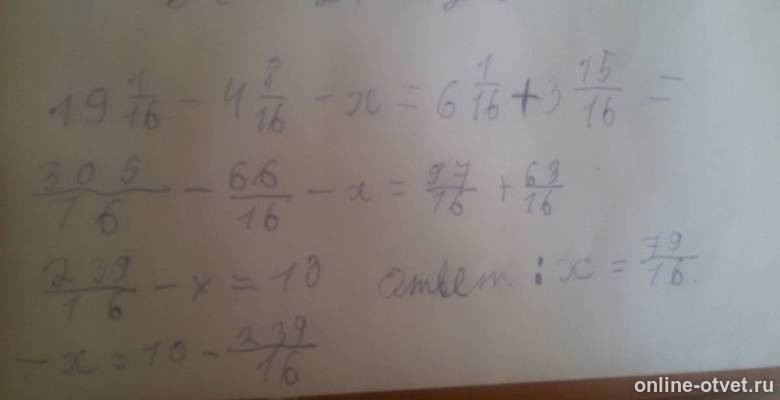 19 1/16 - 4 8/16 - x = 6 1/16 + 3 15/16 =
305/16 - 66/16 - x = 97/16 + 63/16
239/16 - x = 10 ответ : x = 79/16
- x = 10 - 239/16
online-otvet.ru